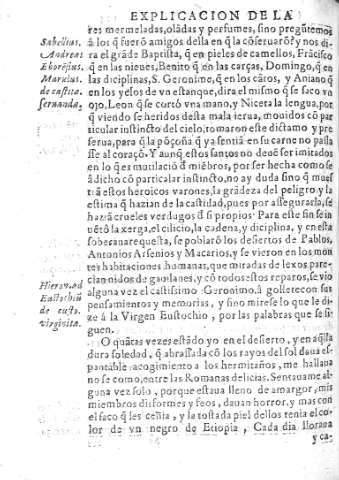 EXPLICACION DE LA
res mermeladas, oladas y perfumes, sino pregũtemos
à los q̃ fuerõ amigos della en q̃ la cõseruarõ? y nos di-
ra el grãde Baptista, q̃ en pieles de camellos, Frãcisco
q̃ en las nieues, Benito q̃ en las çarças, Domingo, q̃ en
las diciplinas, S. Geronimo, q̃ en los cãtos, y Aniano q̃
en los yelos de vn estanque, dira el mismo q̃ se saco vn
ojo, Leon q̃ se cortò vna mano, y Niceta la lengua, por
q̃ viendo se heridos desta mala ierua, mouidos cõ par
ticular instincto del cielo, tomaron este dictamo y pre
serua, para q̃ la põçoña q̃ ya sentiã en su carne no passa
sse al coraçõ. Y aunq̃ estos santos no deuẽ ser imitados
en lo q̃ es mutilaciõ d̃ miẽbros, por ser hecha como se
à dicho cõ particalar instincto, no ay duda sino q̃ mues
trã estos heroicos varones, la grãdeza del peligro y la
estima q̃ hazian de la castidad, pues por assegurarla, se
haziã crueles verdugos d̃ si propios. Para este fin se in
uẽtò la xerga, el cilicio, la cadena, y diciplina, y cn esta
soberana requesta, se poblarõ los desiertos de Pablos,
Antonios Arsenios y Macarios, y se vieron en los mon
tes habitaciones humanas, que miradas de lexos pare-
cian nidos de gauilanes, y cõ todos estos reparos, se vio
alguna vez el castissimo Geronimo, à golletecon sus
pensamientos y memorias, y sino mirese lo que le di-
ze à la Virgen Eustochio, por las palabras que se si-
guen.
O quãtas vezes estãdo yo en el desierto, y en aq̃lla
dura soledad, q̃ abrassada cõ los rayos del sol daua es-
pantable acogimiento a los hermitaños, me hallaua
no se como, entre las Romanas delicias. Sentauame al
guna vez solo, porque estaua lleno de amargor, mis
miembros disformes y feos, dauan horror, y mas con
el saco q̃ les ceñia, y la tostada piel dellos tenia el co-
lor de vn negro de Etiopia, Cada dia lloraua
y ca-
Sabellius.
Andreas
Marulus.
de castita.
seruanda.
Hieron. ad
Eustochiũ
de custo.
virginita.